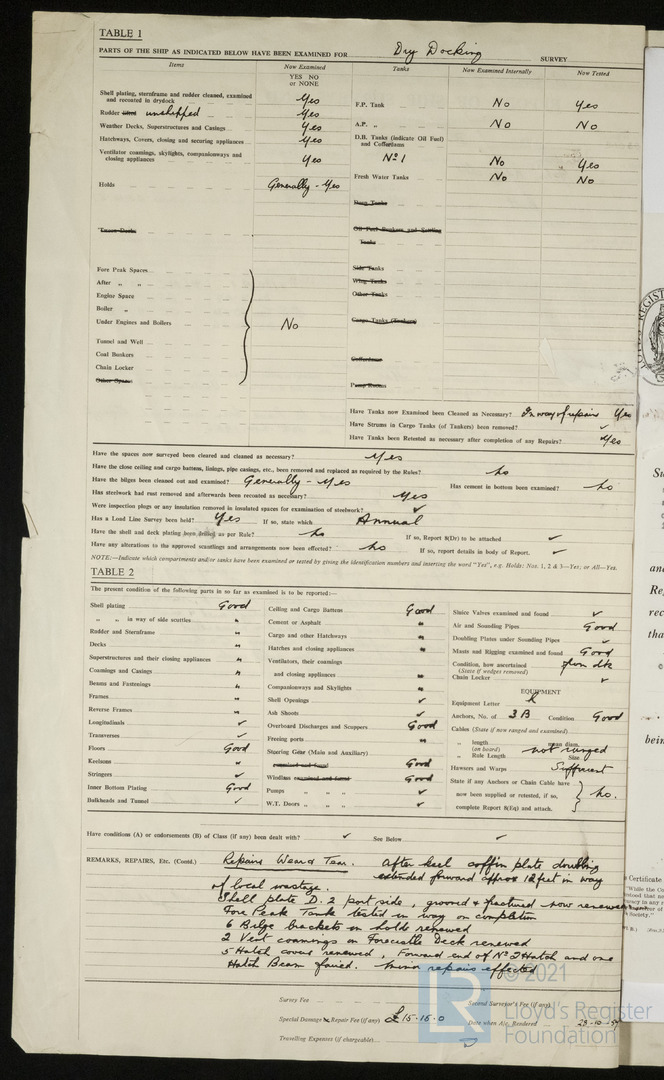 TABLE 1
PARTS OF THE SHIP AS INDICATED BELOW HAVE BEEN EXAMINED FOR Dry Docking SURVEY
Items Now Examined YES NO or NONE Tanks Now Examined Internally Now Tested
Shell plating, sternframe and rudder cleaned, examined and recoated in drydock Yes F.P. Tank No Yes
Rudder lifted unshipped Yes
Weather Decks, Superstructures and Casings Yes A.P. „ No No
Hatchways, Covers, closing and securing appliances Yes D.B. Tanks (indicate Oil Fuel) and Cofferdams
Ventilator coamings, skylights, companionways and closing appliances Yes No 1 No Yes
Fresh Water Tanks No No
Holds Generally - Yes
Deep Tanks
'Tween Decks Oil Fuel Bunkers and Settling Tanks
Fore Peak Spaces Side Tanks
After „ „ Wing Tanks
Engine Space Other Tanks
Boiler „
Under Engines and Boilers No Cargo Tanks (Tankers)
Tunnel and Well
Coal Bunkers Cofferdams
Chain Locker
Other Spaces Pump Rooms
Have Tanks now Examined been Cleaned as Necessary? In way of repairs Yes
Have Strums in Cargo Tanks (of Tankers) been removed? ✓
Have Tanks been Retested as necessary after completion of any Repairs? Yes
Have the spaces now surveyed been cleared and cleaned as necessary? Yes
Have the close ceiling and cargo battens, linings, pipe casings, etc., been removed and replaced as required by the Rules? No
Have the bilges been cleaned out and examined? Generally - Yes Has cement in bottom been examined? No
Has steelwork had rust removed and afterwards been recoated as necessary? Yes
Were inspection plugs or any insulation removed in insulated spaces for examination of steelwork? ✓
Has a Load Line Survey been held? Yes If so, state which Annual
Have the shell and deck plating been drilled as per Rule? No If so, Report 8(Dr) to be attached ✓
Have any alterations to the approved scantlings and arrangements now been effected? No If so, report details in body of Report. ✓
NOTE:—Indicate which compartments and/or tanks have been examined or tested by giving the identification numbers and inserting the word "Yes", e.g. Holds: Nos. 1, 2 & 3—Yes: or All—Yes.
TABLE 2
The present condition of the following parts in so far as examined is to be reported:—
Shell plating Good
„ „ in way of side scuttles "
Rudder and Sternframe "
Decks "
Superstructures and their closing appliances "
Coamings and Casings "
Beams and Fastenings "
Frames "
Reverse Frames "
Longitudinals ✓
Transverses ✓
Floors Good
Keelsons "
Stringers ✓
Inner Bottom Plating Good
Bulkheads and Tunnel ✓
Ceiling and Cargo Battens Good
Cement or Asphalt "
Cargo and other Hatchways "
Hatches and closing appliances "
Ventilators, their coamings
and closing appliances "
Companionways and Skylights "
Shell Openings ✓
Ash Shoots ✓
Overboard Discharges and Scuppers Good
Freeing ports "
Steering Gear (Main and Auxiliary)
examined and found Good
Windlass examined and found Good
Pumps „ „ „ ✓
W.T. Doors „ „ „ ✓
Sluice Valves examined and found ✓
Air and Sounding Pipes Good
Doubling Plates under Sounding Pipes ✓
Masts and Rigging examined and found Good
Condition, how ascertained from dk
(State if wedges removed)
Chain Locker ✓
EQUIPMENT
Equipment Letter K
Anchors, No. of 3 B Condition Good
Cables (State if now ranged and examined)
„ length (on board) mean diam. not ranged
„ Rule Length Size
Hawsers and Warps Sufficient
State if any Anchors or Chain Cable have
now been supplied or retested, if so, No.
complete Report 8(Eq) and attach.
Have conditions (A) or endorsements (B) of Class (if any) been dealt with? ✓ See Below ✓
REMARKS, REPAIRS, Etc. (Contd.) Repairs Wear & Tear. After keel coffin plate doubling
extended forward approx 12 feet in way
of local wastage.
Shell plate D.2 port side, grooved & fractured now renewed
Fore Peak Tank tested in way on completion
6 Bilge brackets in holds renewed
2 Vent coamings on Forecastle Deck renewed
5 Hatch covers renewed, Forward end of No 2 Hatch and one
Hatch Beam faired. Minor repairs effected
Survey Fee Second Surveyor's Fee (if any)
Special Damage or Repair Fee (if any) £15-15-0 Date when A/c. Rendered
Travelling Expenses (if chargeable)
© 2021
LR
Lloyd's Register
Foundation
LLOYD'S REGISTER
Certificate
"While the Co